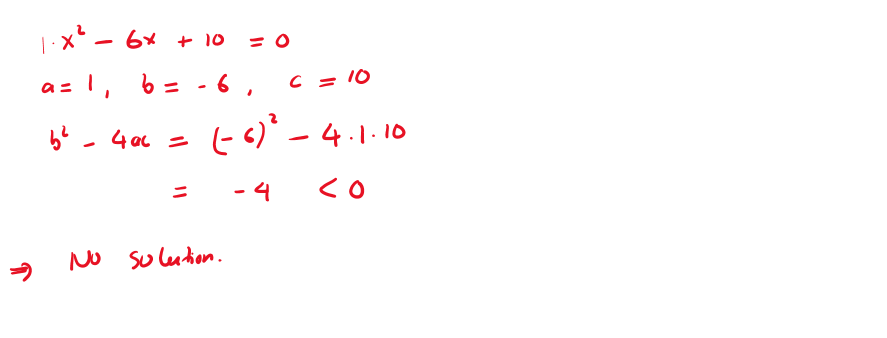 1·x² - 6x + 10 = 0
a = 1, b = -6, c = 10
b² - 4ac = (-6)² - 4·1·10
= -4 < 0
⇒ No solution.